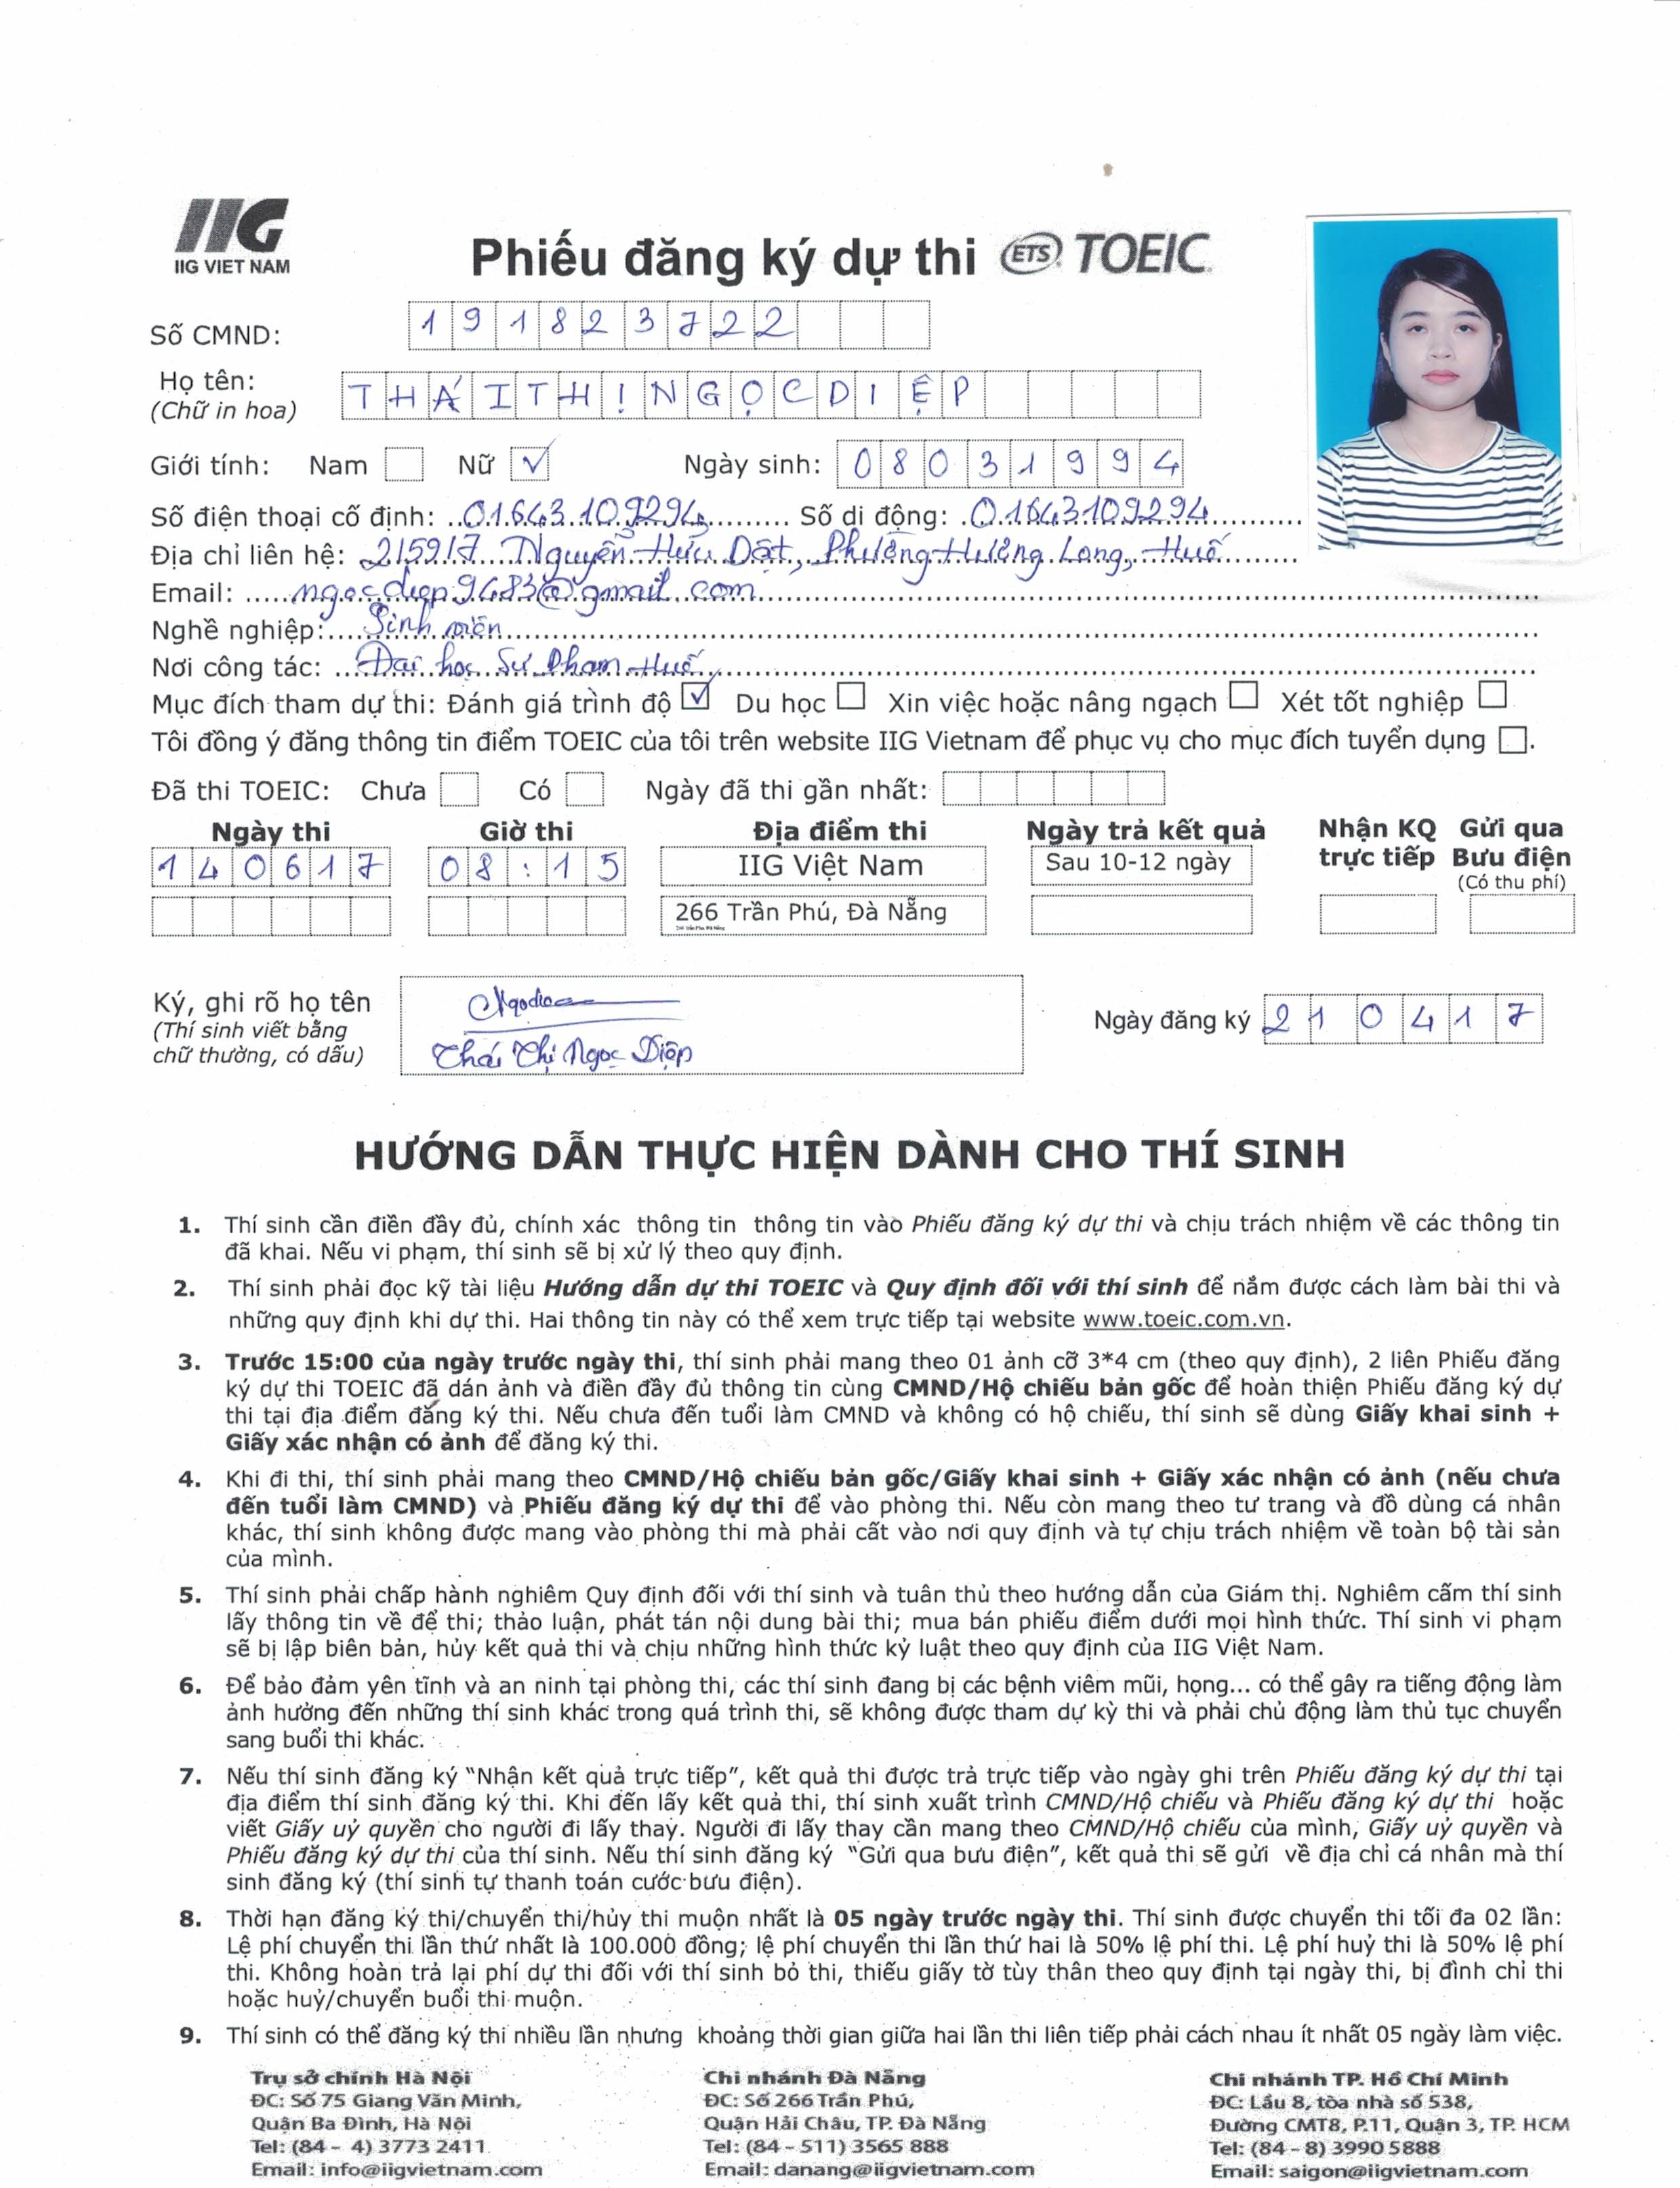 IIG
IIG VIET NAM
Phiếu đăng ký dự thi ETS TOEIC
Số CMND: 191823722
Họ tên: THÁI THỊ NGỌC DIỆP
(Chữ in hoa)
Giới tính: Nam Nữ ✓ Ngày sinh: 08031994
Số điện thoại cố định: 01643109294 Số di động: 01643109294
Địa chỉ liên hệ: Nguyễn Hữu Dật, Phường Hương Long, Huế
Email: ngocdiep9483@gmail.com
Nghề nghiệp: Sinh viên
Nơi công tác: Đại học Sư Phạm Huế
Mục đích tham dự thi: Đánh giá trình độ ✓ Du học Xin việc hoặc nâng ngạch Xét tốt nghiệp
Tôi đồng ý đăng thông tin điểm TOEIC của tôi trên website IIG Vietnam để phục vụ cho mục đích tuyển dụng .
Đã thi TOEIC: Chưa Có Ngày đã thi gần nhất:
Ngày thi Giờ thi Địa điểm thi Ngày trả kết quả Nhận KQ trực tiếp Gửi qua Bưu điện (Có thu phí)
140617 08:15 IIG Việt Nam Sau 10-12 ngày
266 Trần Phú, Đà Nẵng
Ký, ghi rõ họ tên
(Thí sinh viết bằng
chữ thường, có dấu)
Thái Thị Ngọc Diệp
Ngày đăng ký 210417
HƯỚNG DẪN THỰC HIỆN DÀNH CHO THÍ SINH
1. Thí sinh cần điền đầy đủ, chính xác thông tin thông tin vào Phiếu đăng ký dự thi và chịu trách nhiệm về các thông tin
đã khai. Nếu vi phạm, thí sinh sẽ bị xử lý theo quy định.
2. Thí sinh phải đọc kỹ tài liệu Hướng dẫn dự thi TOEIC và Quy định đối với thí sinh để nắm được cách làm bài thi và
những quy định khi dự thi. Hai thông tin này có thể xem trực tiếp tại website www.toeic.com.vn.
3. Trước 15:00 của ngày trước ngày thi, thí sinh phải mang theo 01 ảnh cỡ 3*4 cm (theo quy định), 2 liên Phiếu đăng
ký dự thi TOEIC đã dán ảnh và điền đầy đủ thông tin cùng CMND/Hộ chiếu bản gốc để hoàn thiện Phiếu đăng ký dự
thi tại địa điểm đăng ký thi. Nếu chưa đến tuổi làm CMND và không có hộ chiếu, thí sinh sẽ dùng Giấy khai sinh +
Giấy xác nhận có ảnh để đăng ký thi.
4. Khi đi thi, thí sinh phải mang theo CMND/Hộ chiếu bản gốc/Giấy khai sinh + Giấy xác nhận có ảnh (nếu chưa
đến tuổi làm CMND) và Phiếu đăng ký dự thi để vào phòng thi. Nếu còn mang theo tư trang và đồ dùng cá nhân
khác, thí sinh không được mang vào phòng thi mà phải cất vào nơi quy định và tự chịu trách nhiệm về toàn bộ tài sản
của mình.
5. Thí sinh phải chấp hành nghiêm Quy định đối với thí sinh và tuân thủ theo hướng dẫn của Giám thị. Nghiêm cấm thí sinh
lấy thông tin về để thi; thảo luận, phát tán nội dung bài thi; mua bán phiếu điểm dưới mọi hình thức. Thí sinh vi phạm
sẽ bị lập biên bản, hủy kết quả thi và chịu những hình thức kỷ luật theo quy định của IIG Việt Nam.
6. Để bảo đảm yên tĩnh và an ninh tại phòng thi, các thí sinh đang bị các bệnh viêm mũi, họng... có thể gây ra tiếng động làm
ảnh hưởng đến những thí sinh khác trong quá trình thi, sẽ không được tham dự kỳ thi và phải chủ động làm thủ tục chuyển
sang buổi thi khác.
7. Nếu thí sinh đăng ký “Nhận kết quả trực tiếp”, kết quả thi được trả trực tiếp vào ngày ghi trên Phiếu đăng ký dự thi tại
địa điểm thí sinh đăng ký thi. Khi đến lấy kết quả thi, thí sinh xuất trình CMND/Hộ chiếu và Phiếu đăng ký dự thi hoặc
viết Giấy uỷ quyền cho người đi lấy thay. Người đi lấy thay cần mang theo CMND/Hộ chiếu của mình, Giấy uỷ quyền và
Phiếu đăng ký dự thi của thí sinh. Nếu thí sinh đăng ký “Gửi qua bưu điện”, kết quả thi sẽ gửi về địa chỉ cá nhân mà thí
sinh đăng ký (thí sinh tự thanh toán cước bưu điện).
8. Thời hạn đăng ký thi/chuyển thi/hủy thi muộn nhất là 05 ngày trước ngày thi. Thí sinh được chuyển thi tối đa 02 lần:
Lệ phí chuyển thi lần thứ nhất là 100.000 đồng; lệ phí chuyển thi lần thứ hai là 50% lệ phí thi. Lệ phí huỷ thi là 50% lệ phí
thi. Không hoàn trả lại phí dự thi đối với thí sinh bỏ thi, thiếu giấy tờ tùy thân theo quy định tại ngày thi, bị đình chỉ thi
hoặc huỷ/chuyển buổi thi muộn.
9. Thí sinh có thể đăng ký thi nhiều lần nhưng khoảng thời gian giữa hai lần thi liên tiếp phải cách nhau ít nhất 05 ngày làm việc.
Trụ sở chính Hà Nội
ĐC: Số 75 Giang Văn Minh,
Quận Ba Đình, Hà Nội
Tel: (84 - 4) 3773 2411
Email: info@iigvietnam.com
Chi nhánh Đà Nẵng
ĐC: Số 266 Trần Phú,
Quận Hải Châu, TP. Đà Nẵng
Tel: (84 - 511) 3565 888
Email: danang@iigvietnam.com
Chi nhánh TP. Hồ Chí Minh
ĐC: Lầu 8, tòa nhà số 538,
Đường CMT8, P.11, Quận 3, TP. HCM
Tel: (84 - 8) 3990 5888
Email: saigon@iigvietnam.com